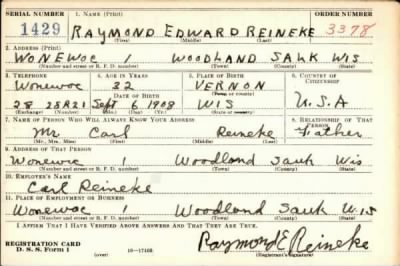 SERIAL NUMBER 1. NAME (Print) ORDER NUMBER
1429 RAYMOND EDWARD REINEKE 3378
(First) (Middle) (Last)
2. ADDRESS (Print)
WONEWOC WOODLAND SAUK WIS
(Number and street or R. F. D. number) (Town) (County) (State)
3. TELEPHONE 4. AGE IN YEARS 5. PLACE OF BIRTH 6. COUNTRY OF CITIZENSHIP
Wonewoc 32 VERNON
DATE OF BIRTH (Town or county)
28 25R21 Sept 6 1908 WIS U.S.A
(Exchange) (Number) (Mo.) (Day) (Yr.) (State or country)
7. NAME OF PERSON WHO WILL ALWAYS KNOW YOUR ADDRESS 8. RELATIONSHIP OF THAT PERSON
Mr. Carl Reineke Father
(Mr., Mrs., Miss) (First) (Middle) (Last)
9. ADDRESS OF THAT PERSON
Wonewoc 1 Woodland Sauk Wis
(Number and street or R. F. D. number) (Town) (County) (State)
10. EMPLOYER'S NAME
Carl Reineke
11. PLACE OF EMPLOYMENT OR BUSINESS
Wonewoc 1 Woodland Sauk Wis
(Number and street or R. F. D. number) (Town) (County) (State)
I AFFIRM THAT I HAVE VERIFIED ABOVE ANSWERS AND THAT THEY ARE TRUE.
REGISTRATION CARD
D. S. S. FORM 1 16—17105 Raymond E Reineke
(Registrant's signature)